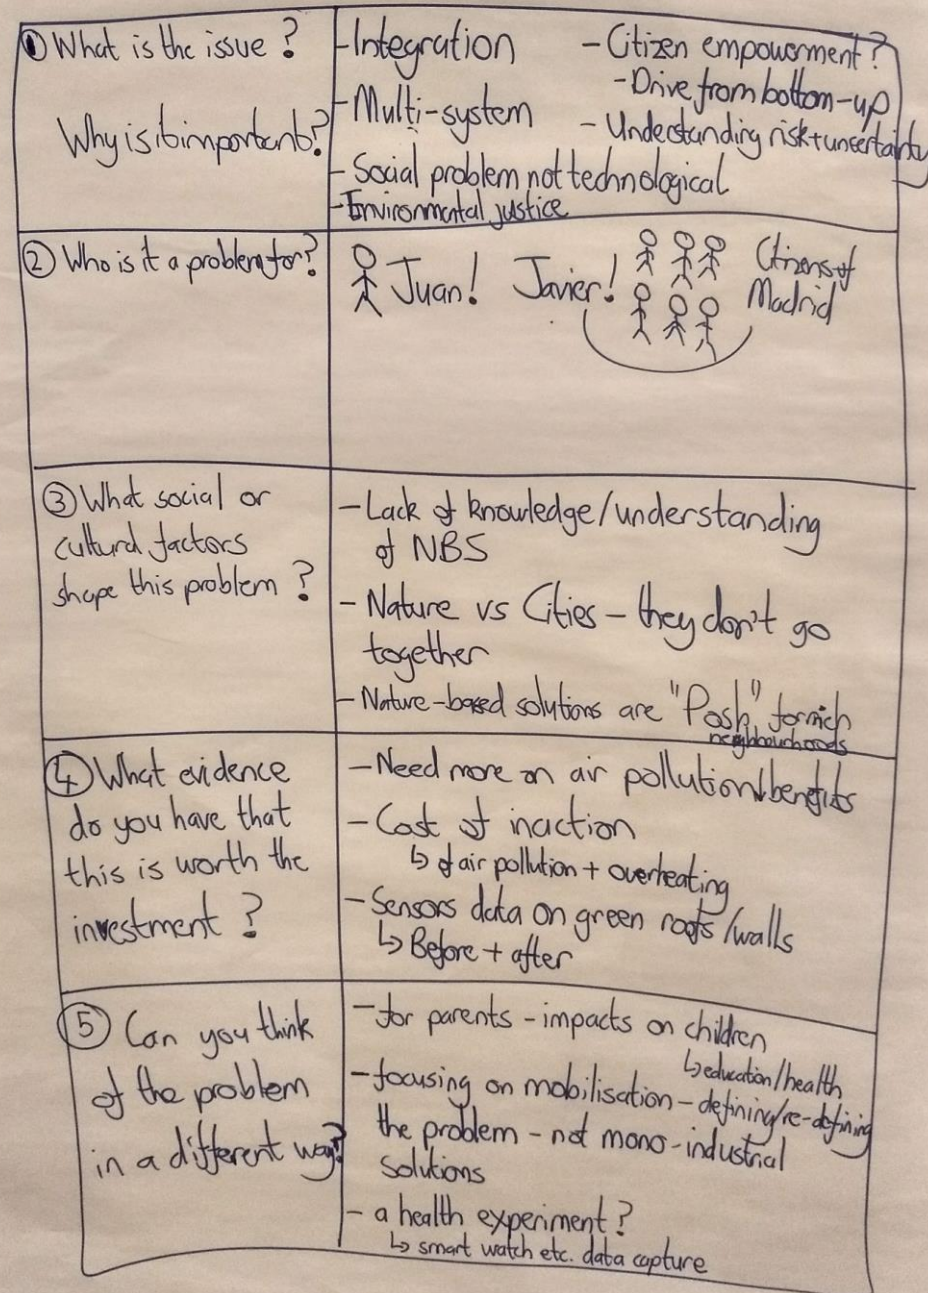 ① What is the issue?
Why is it important?
- Integration
- Multi-system
- Social problem not technological
- Environmental justice
- Citizen empowerment?
- Drive from bottom-up
- Understanding risk + uncertainty
② Who is it a problem for?
Juan! Javier!
Citizens of
Madrid
③ What social or
cultural factors
shape this problem?
- Lack of knowledge/understanding
of NBS
- Nature vs Cities - they don't go
together
- Nature-based solutions are "Posh" for rich
neighbourhoods
④ What evidence
do you have that
this is worth the
investment?
- Need more on air pollution/benefits
- Cost of inaction
↳ of air pollution + overheating
- Sensors data on green roofs/walls
↳ Before + after
⑤ Can you think
of the problem
in a different way?
- for parents - impacts on children
↳ education/health
- focusing on mobilisation - defining/re-defining
the problem - not mono-industrial
solutions
- a health experiment?
↳ smart watch etc. data capture